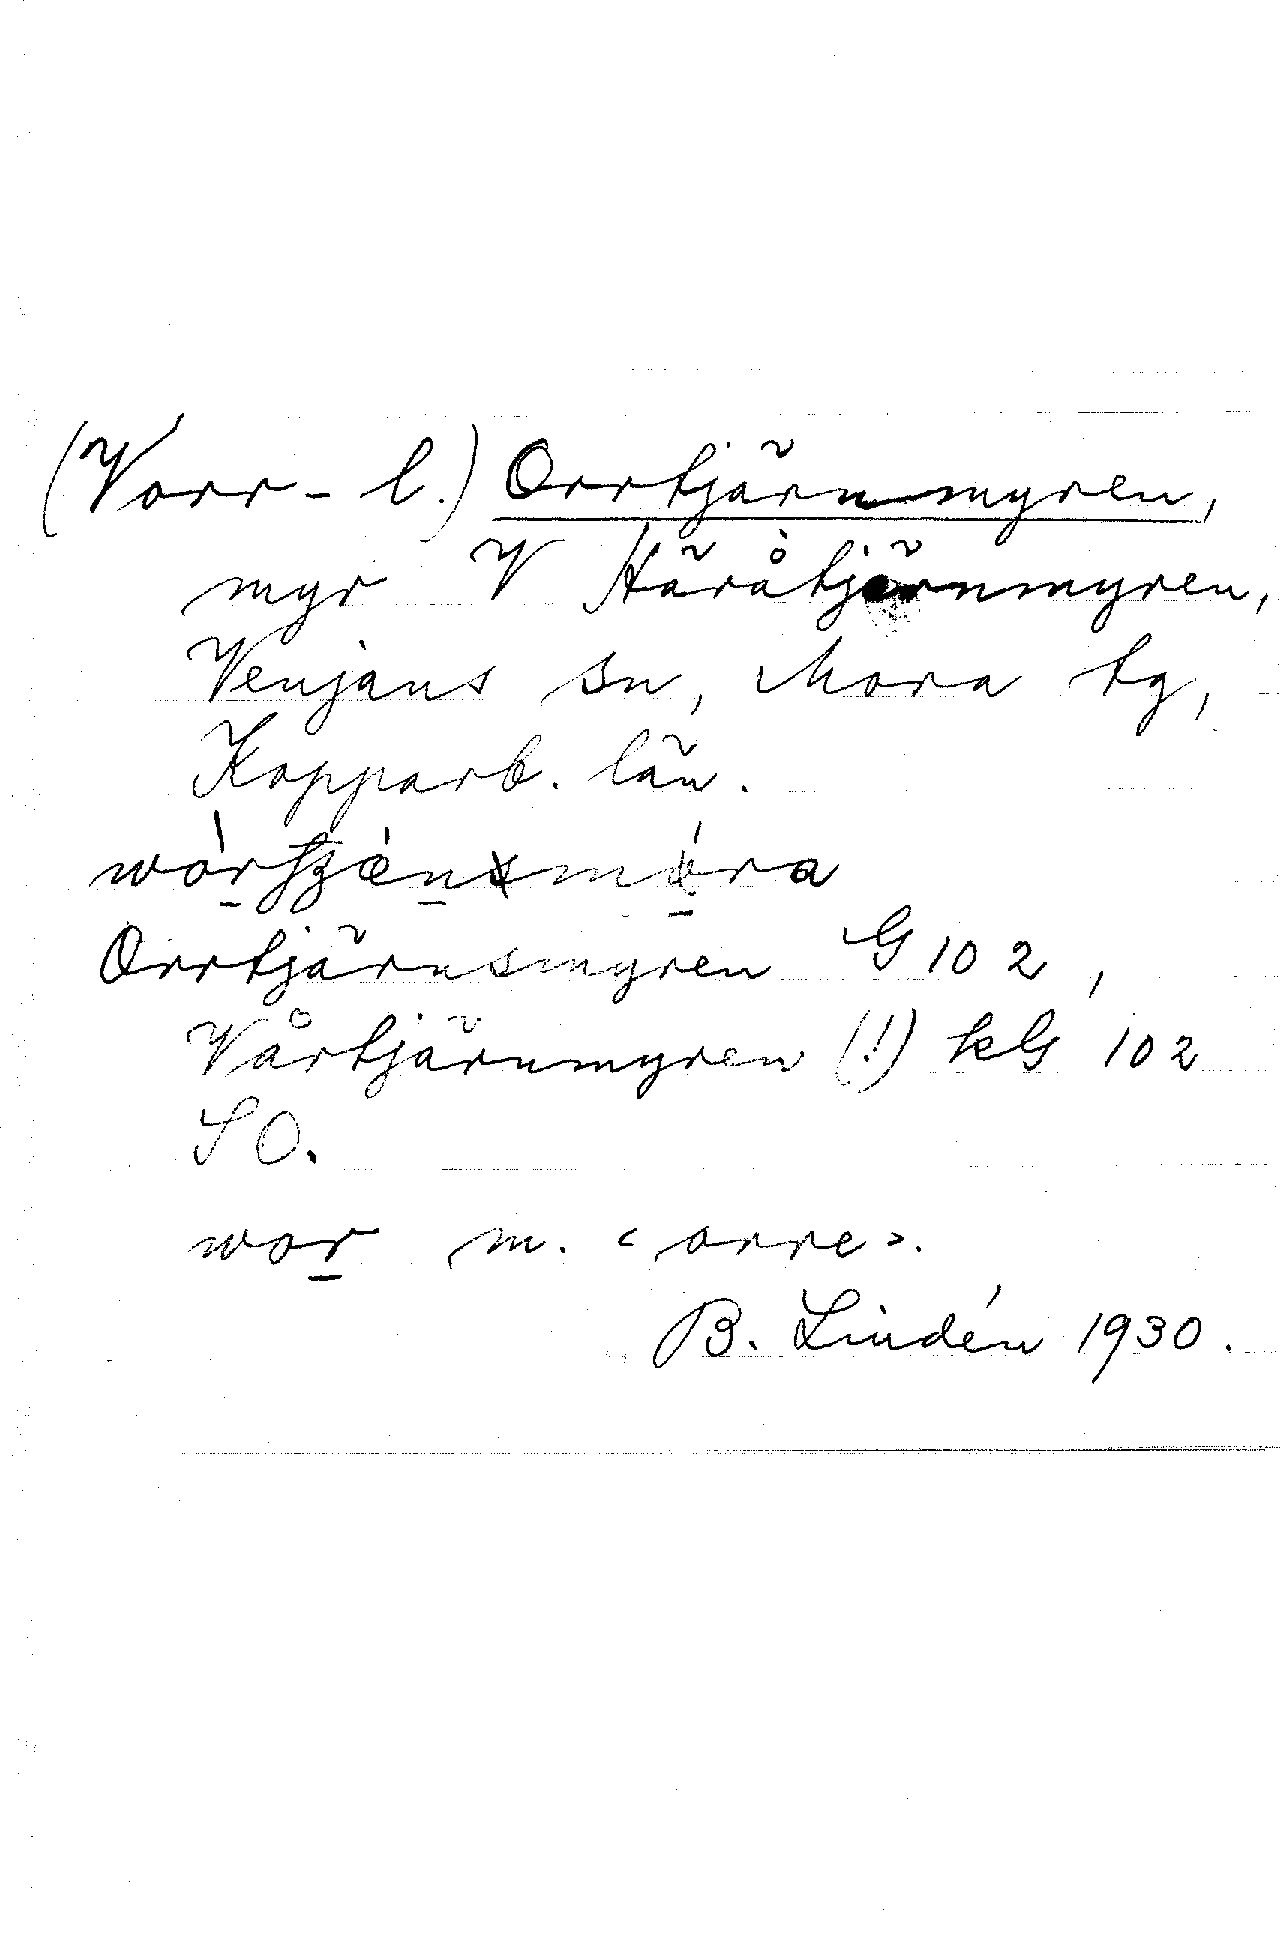 (Vorr- l.) Orrtjärnmyren,
myr V Häråtjärnmyren,
Venjans sn, Mora tg,
Kopparb. län.
Orrtjärnsmyren G 102,
Vårtjärnmyren (!) kG 102
SO.
wor m. < orre >.
B. Lindén 1930.